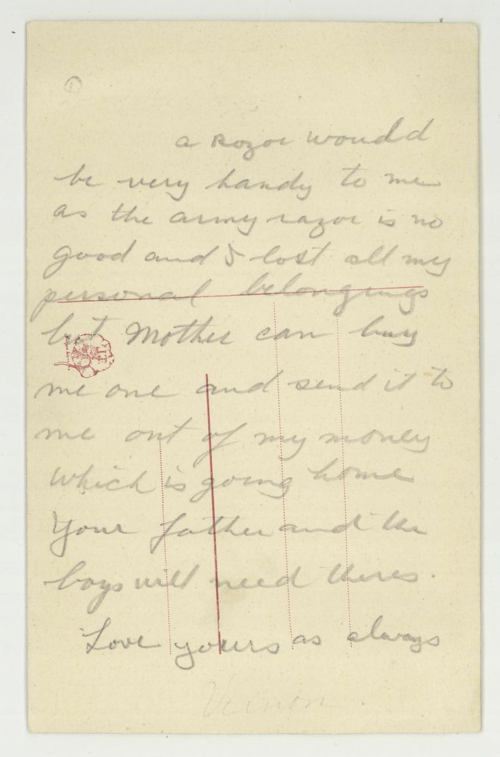 a Rozor would
be very handy to me
as the army razor is no
good and I lost all my
personal belongings
but Mother can buy
me one and send it to
me out of my money
which is going home
Your father and the
boys will need theres.
Love yours as always
Vernon.